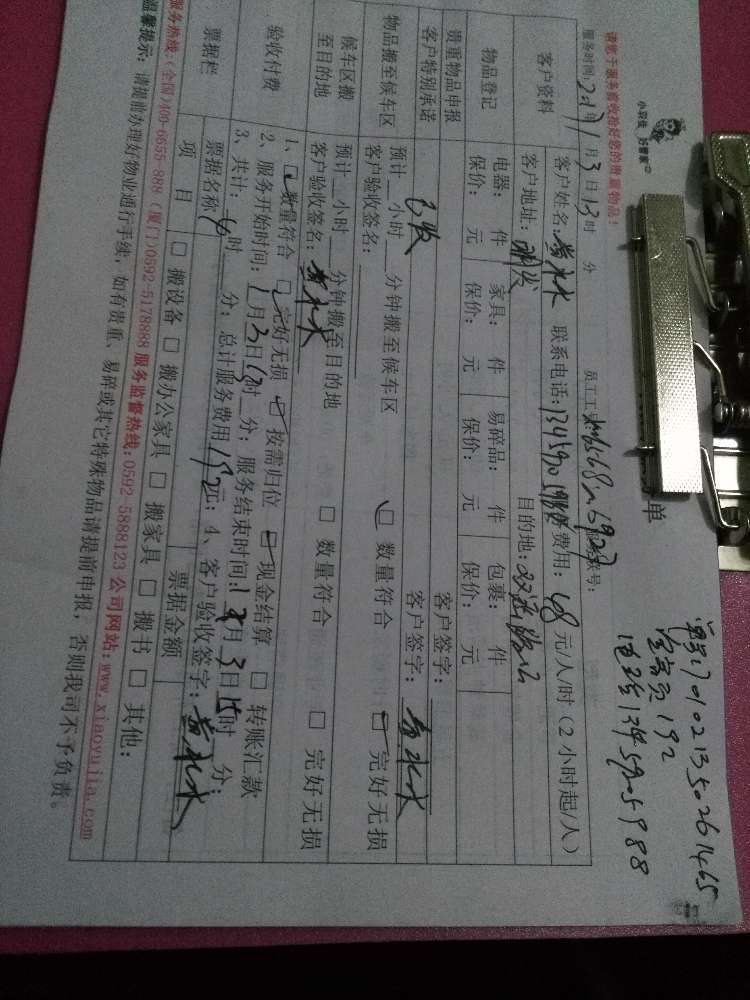 单
小羽佳 好管家
请您于服务前收拾好您的贵重物品！
服务时间:2017年1月3日13时 分 员工工号:
客户资料 客户姓名: 联系电话: 服务费用:48元/人/时(2小时起/人)
客户地址: 目的地:
物品登记 电器: 件 家具: 件 易碎品: 件 包裹: 件
保价: 元 保价: 元 保价: 元 保价: 元
贵重物品申报 客户签字:
客户特别承诺 客户签字:
物品搬至候车区 预计 小时 分钟搬至候车区 数量符合 □ 完好无损
客户验收签名:
候车区搬至目的地 预计 小时 分钟搬至目的地 □ 数量符合 □ 完好无损
客户验收签名:
验收付费 1、数量符合 完好无损 按需归位 现金结算 □ 转账汇款
2、服务开始时间:1月3日13时 分；服务结束时间:1月3日15时 分；
3、共计: 时 分；总计服务费用192元；4、客户验收签字:
票据栏 票据名称 票据金额
项 目 □ 搬设备 □ 搬办公家具 □ 搬家具 □ 搬书 □ 其他:
服务热线:(全国)400-6655-888 (厦门)0592-5178888 服务监督热线:0592-5888123 公司网站:www.xiaoyujia.com
温馨提示: 请提前办理好物业通行手续, 如有贵重、易碎或其它特殊物品请提前申报, 否则我司不予负责。